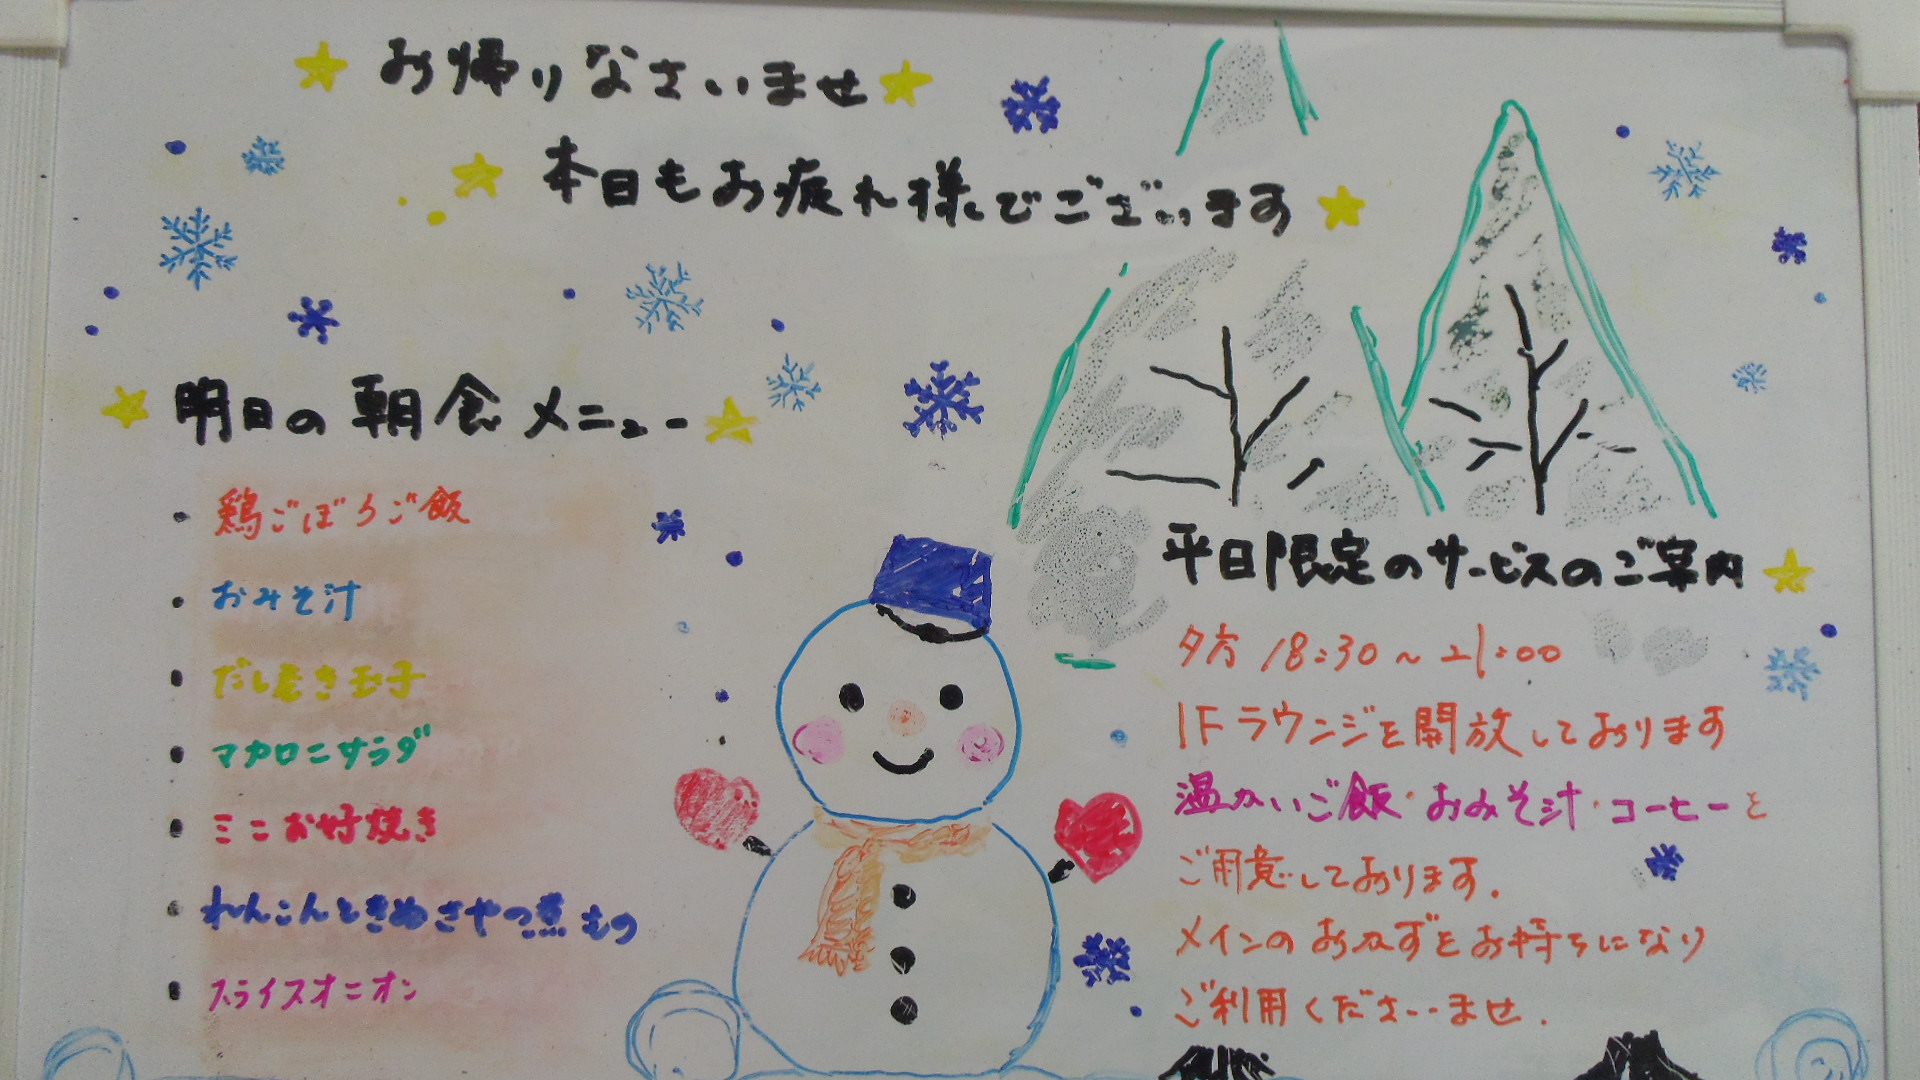 お帰りなさいませ
本日もお疲れ様でございます
明日の朝食メニュー
・鶏ごぼうご飯
・おみそ汁
・だし巻き玉子
・マカロニサラダ
・ミニお好焼き
・れんこんときぬさやの煮もの
・スライスオニオン
平日限定のサービスのご案内
夕方 18:30～21:00
1Fラウンジを開放しております
温かいご飯・おみそ汁・コーヒーを
ご用意しております.
メインのおかずをお持ちになり
ご利用くださいませ.